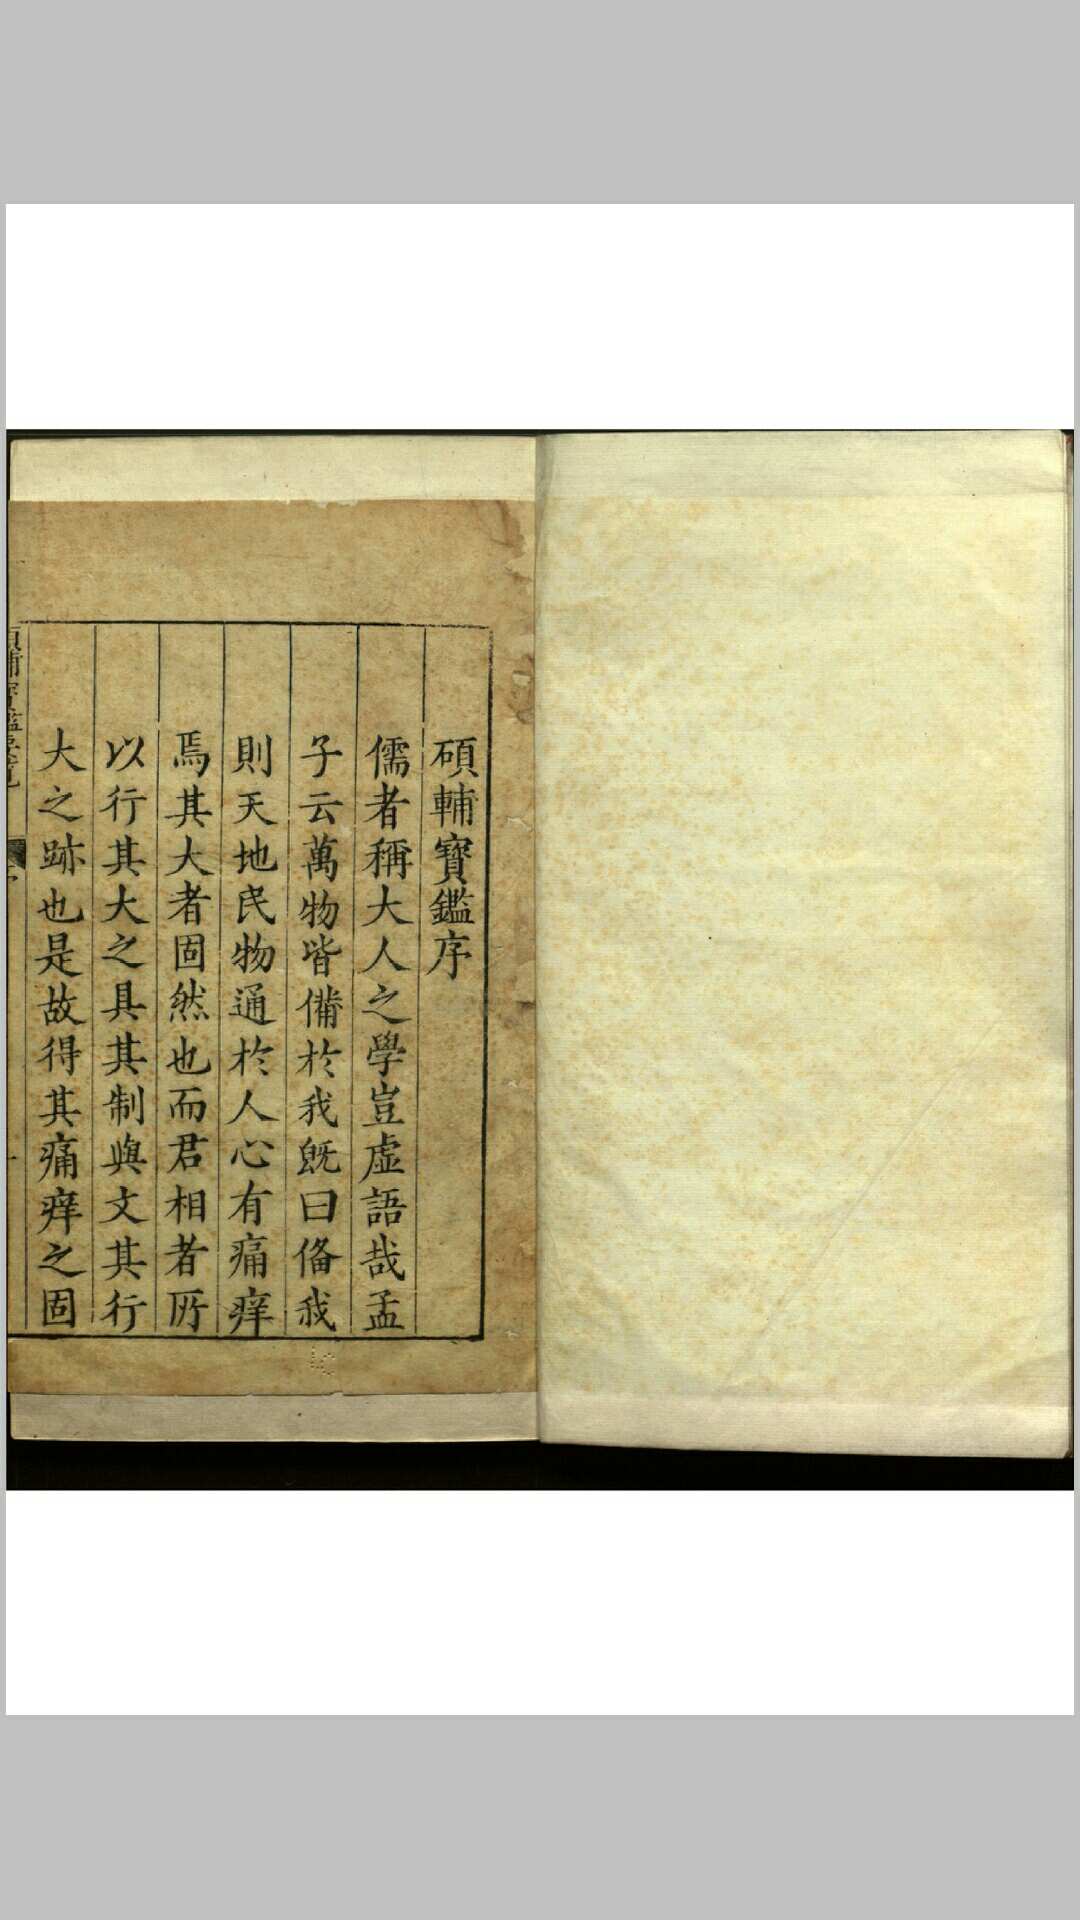 碩輔寶鑑序
儒者稱大人之學豈虛語哉孟
子云萬物皆備於我既曰俻我
則天地民物通於人心有痛痒
焉其大者固然也而君相者所
以行其大之具其制與文其行
大之跡也是故得其痛痒之固